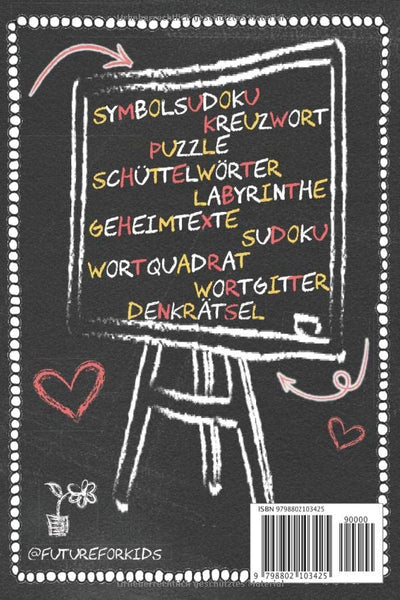 SYMBOLSUDOKU
KREUZWORT
PUZZLE
SCHÜTTELWÖRTER
LABYRINTHE
GEHEIMTEXTE
SUDOKU
WORTQUADRAT
WORTGITTER
DENKRÄTSEL
ISBN 9798802103425
90000
9 798802 103425
@FUTUREFORKIDS
Urheberrechtlich geschütztes Material